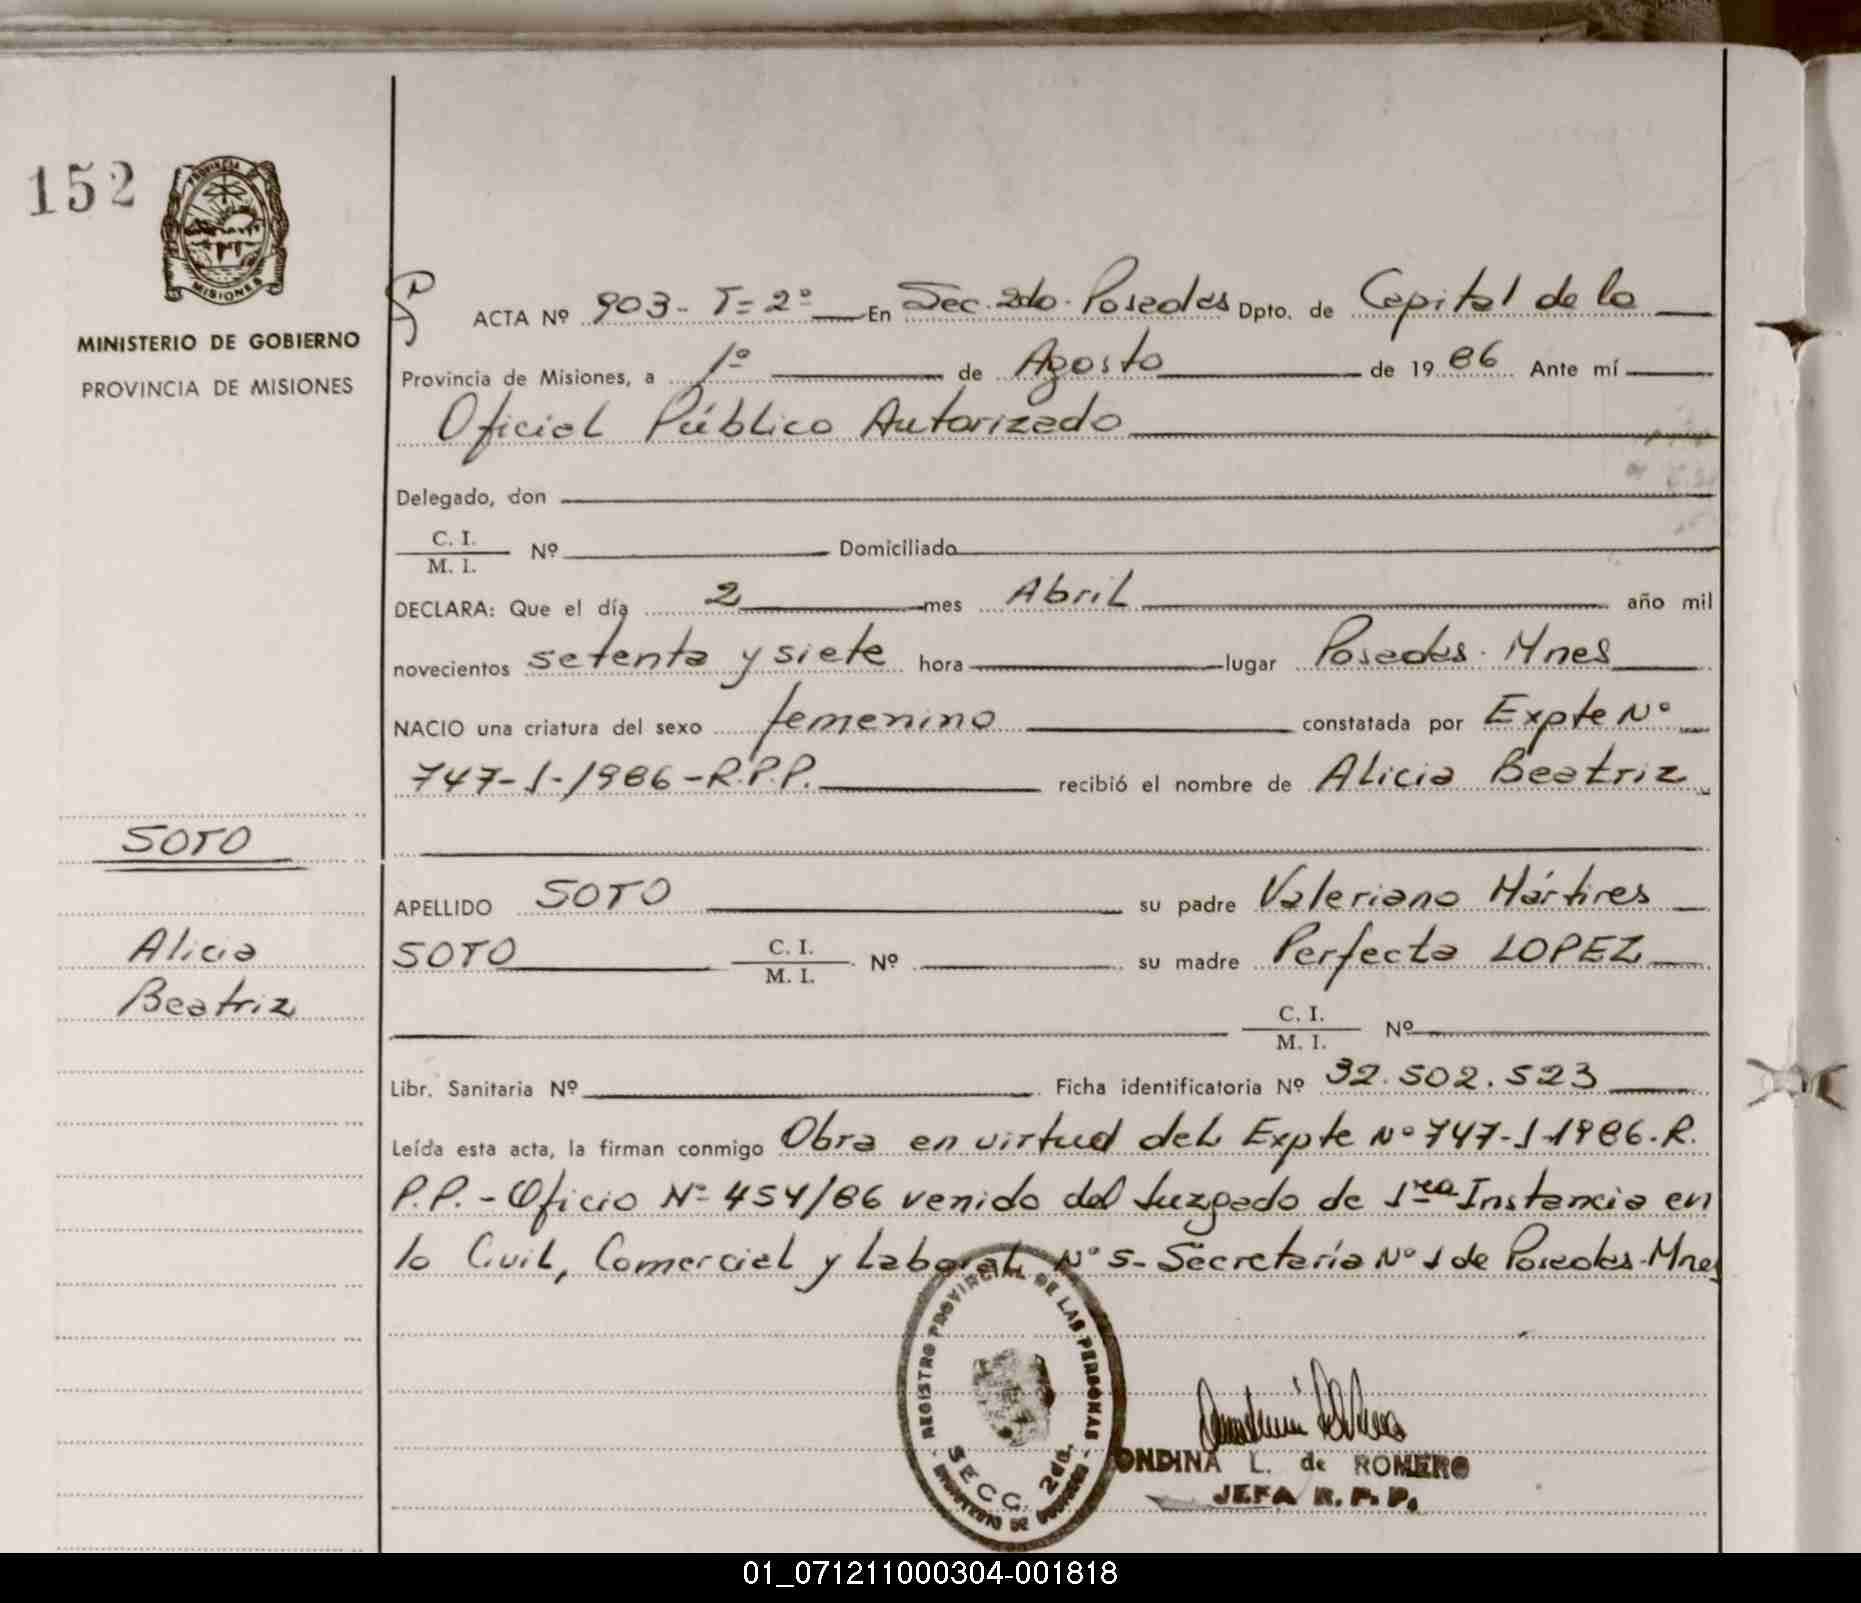 152
PROVINCIA DE
MISIONES
MINISTERIO DE GOBIERNO
PROVINCIA DE MISIONES
ACTA Nº 903- T=2º En Sec. 2do. Posadas Dpto. de Capital de la
Provincia de Misiones, a 1º de Agosto de 1986 Ante mí
Oficial Público Autorizado
Delegado, don
C. I.
M. I. Nº Domiciliado
DECLARA: Que el día 2 mes Abril año mil
novecientos setenta y siete hora lugar Posadas. Mnes
NACIO una criatura del sexo femenino constatada por Expte Nº
747-J-1986-R.P.P. recibió el nombre de Alicia Beatriz
SOTO
Alicia
Beatriz
APELLIDO SOTO su padre Valeriano Mártires
SOTO C. I. M. I. Nº su madre Perfecta LOPEZ
C. I. M. I. Nº
Libr. Sanitaria Nº Ficha identificatoria Nº 32.502.523
Leída esta acta, la firman conmigo Obra en virtud del Expte Nº 747-J-1986.R.
P.P.- Oficio Nº 454/86 venido del Juzgado de 1ra Instancia en
lo Civil, Comercial y Laboral Nº 5- Secretaría Nº 1 de Posadas-Mnes
REGISTRO PROVINCIAL DE LAS PERSONAS
SECC. 2da.
ONDINA L. de ROMERO
JEFA R. P. P.
01_071211000304-001818